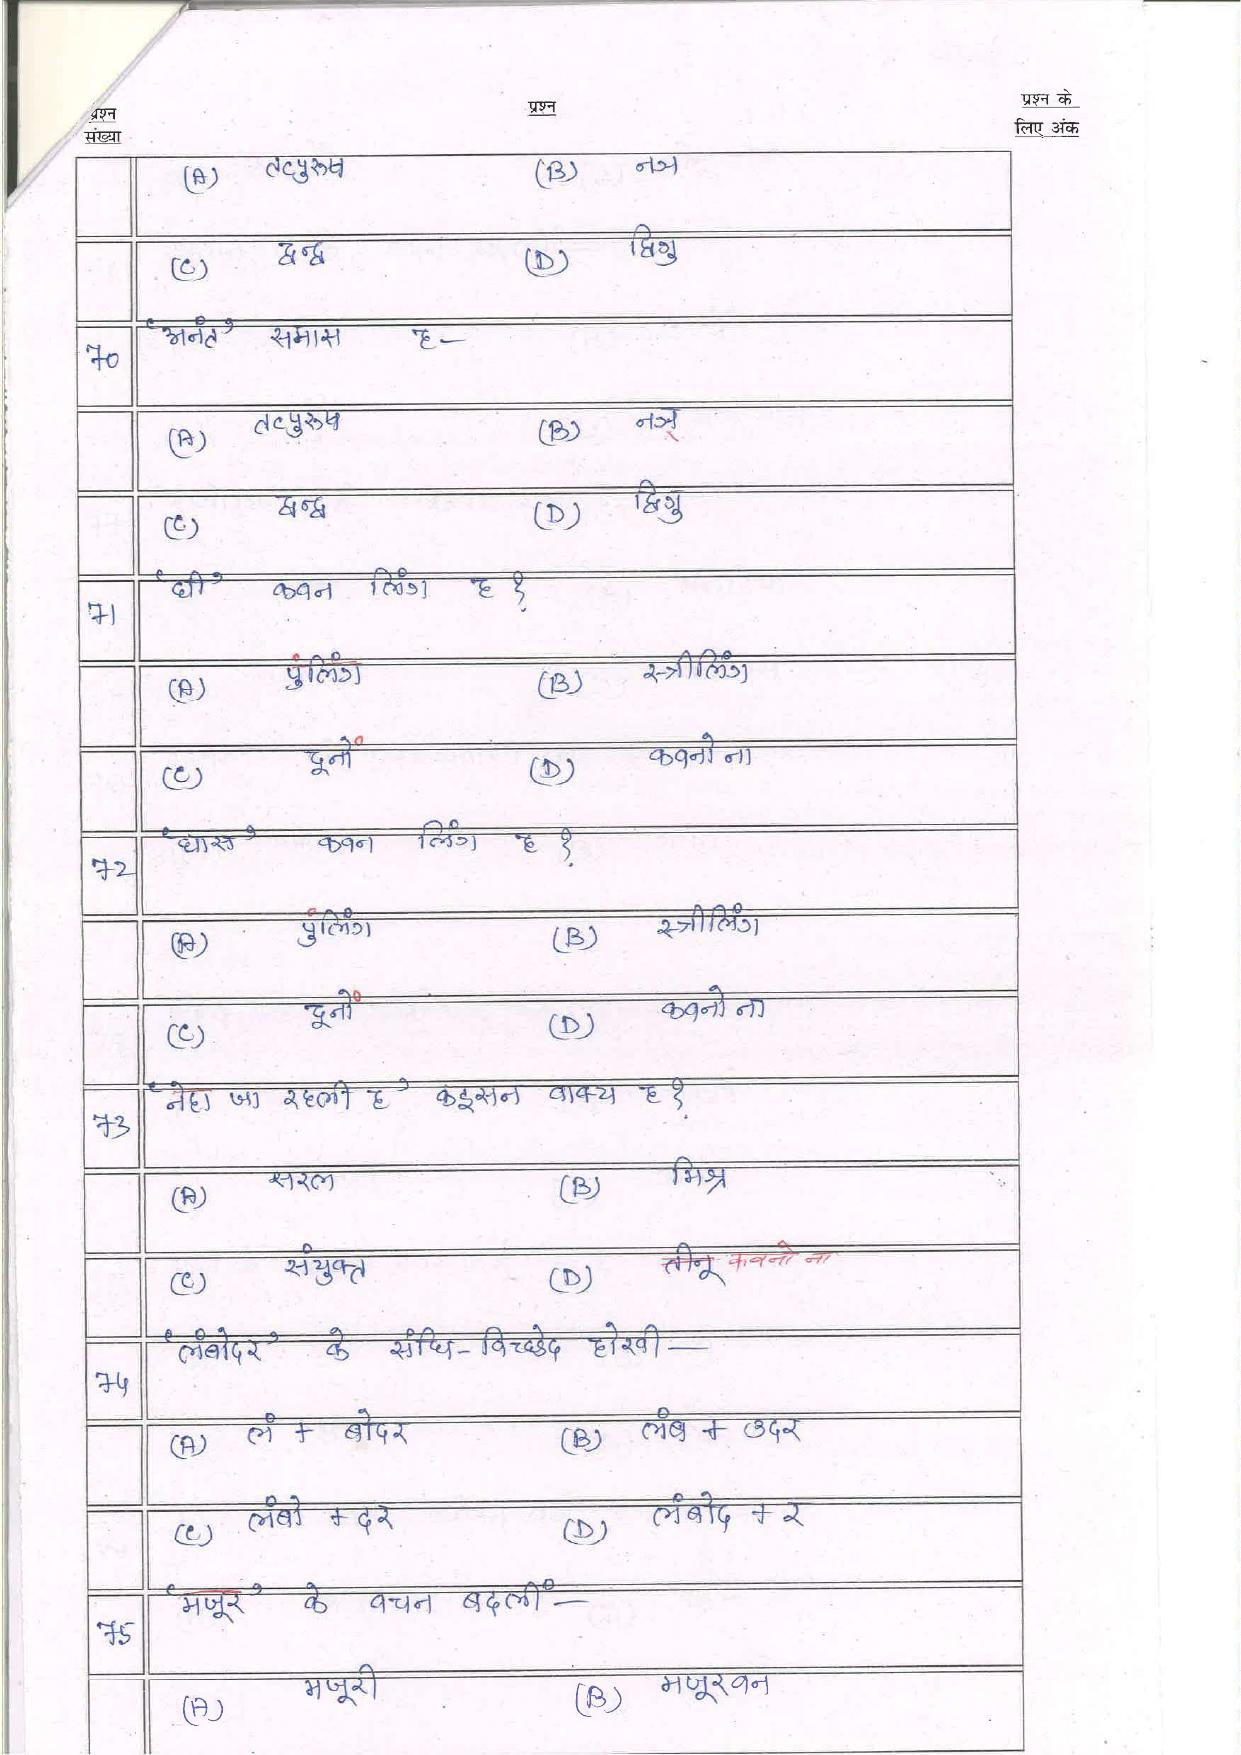 प्रश्न संख्या प्रश्न प्रश्न के लिए अंक
(A) तत्पुरूष (B) नञ
(C) द्वन्द्व (D) द्विगु
70 'अनंत' समास ह—
(A) तत्पुरूष (B) नञ्
(C) द्वन्द्व (D) द्विगु
71 'घी' कवन लिंग ह?
(A) पुंलिंग (B) स्त्रीलिंग
(C) दूनों (D) कवनो ना
72 'घास' कवन लिंग ह?
(A) पुंलिंग (B) स्त्रीलिंग
(C) दूनों (D) कवनो ना
73 'नेहा जा रहली ह' कइसन वाक्य ह?
(A) सरल (B) मिश्र
(C) संयुक्त (D) तीनू कवनो ना
74 'लंबोदर' के संधि-विच्छेद होखी—
(A) लं + बोदर (B) लंब + उदर
(C) लंबो + दर (D) लंबोद + र
75 'मजूर' के वचन बदलीं—
(A) मजूरी (B) मजूरवन